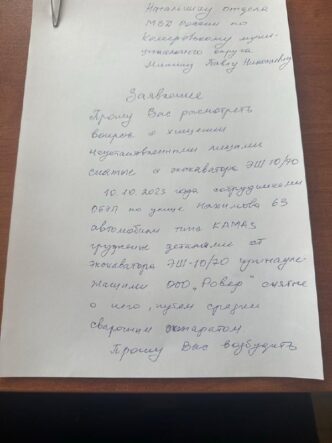 Начальнику отдела
МВД России по
Кемеровскому муни-
ципального округа
Павлу Николаевичу
Заявление
Прошу Вас расмотреть
вопрос о хищении
неустановленными лицами
снятые с экскаватора ЭШ 10/70
10.10.2023 года сотрудниками
по улице Нахимова 63
автомобили типа КАМАЗ
груженые деталями от
экскаватора ЭШ-10/70 принадле-
жащыи ООО „Ровер" снятые
с него, путем срезки
сварочным аппаратом
Прошу Вас возбудить